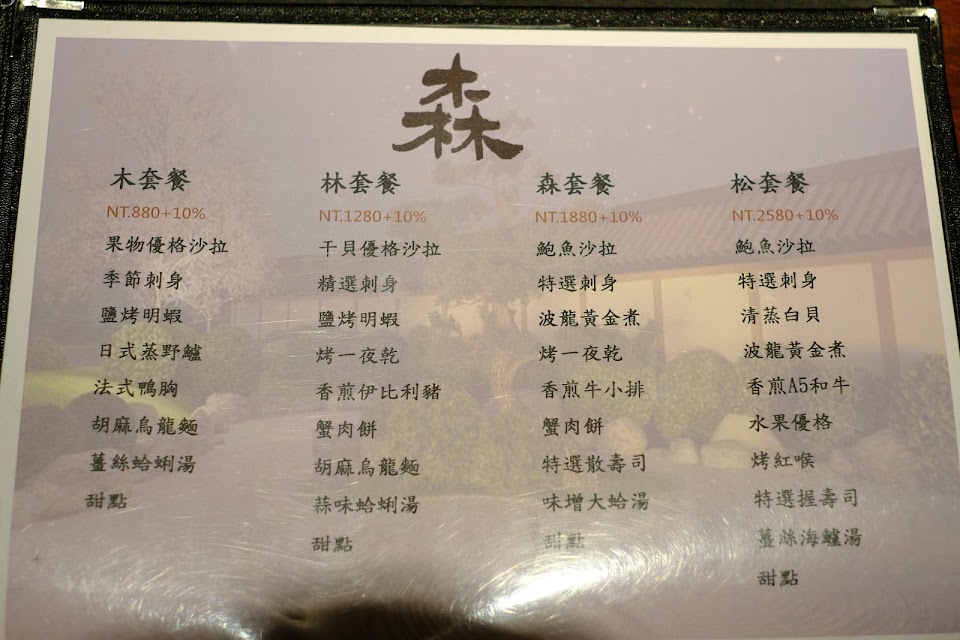 森
木套餐
NT.880+10%
果物優格沙拉
季節刺身
鹽烤明蝦
日式蒸野鱸
法式鴨胸
胡麻烏龍麵
薑絲蛤蜊湯
甜點
林套餐
NT.1280+10%
干貝優格沙拉
精選刺身
鹽烤明蝦
烤一夜乾
香煎伊比利豬
蟹肉餅
胡麻烏龍麵
蒜味蛤蜊湯
甜點
森套餐
NT.1880+10%
鮑魚沙拉
特選刺身
波龍黃金煮
烤一夜乾
香煎牛小排
蟹肉餅
特選散壽司
味增大蛤湯
甜點
松套餐
NT.2580+10%
鮑魚沙拉
特選刺身
清蒸白貝
波龍黃金煮
香煎A5和牛
水果優格
烤紅喉
特選握壽司
薑絲海鱸湯
甜點